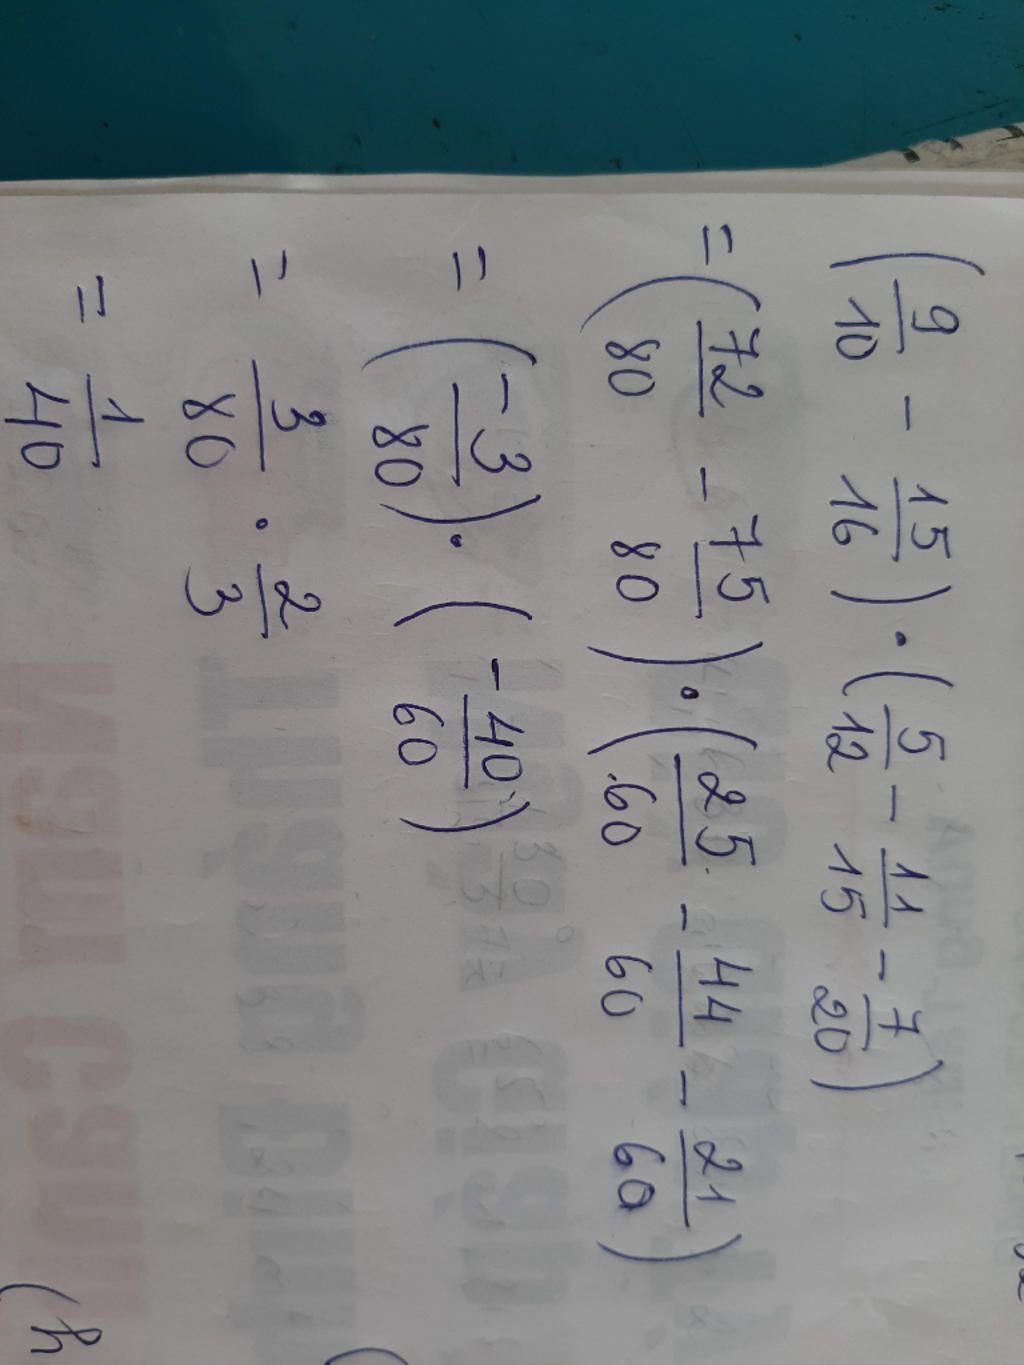 (9/10 - 15/16) · (5/12 - 11/15 - 7/20)
= (72/80 - 75/80) · (25/60 - 44/60 - 21/60)
= (-3/80) · (-40/60)
= 3/80 · 2/3
= 1/40